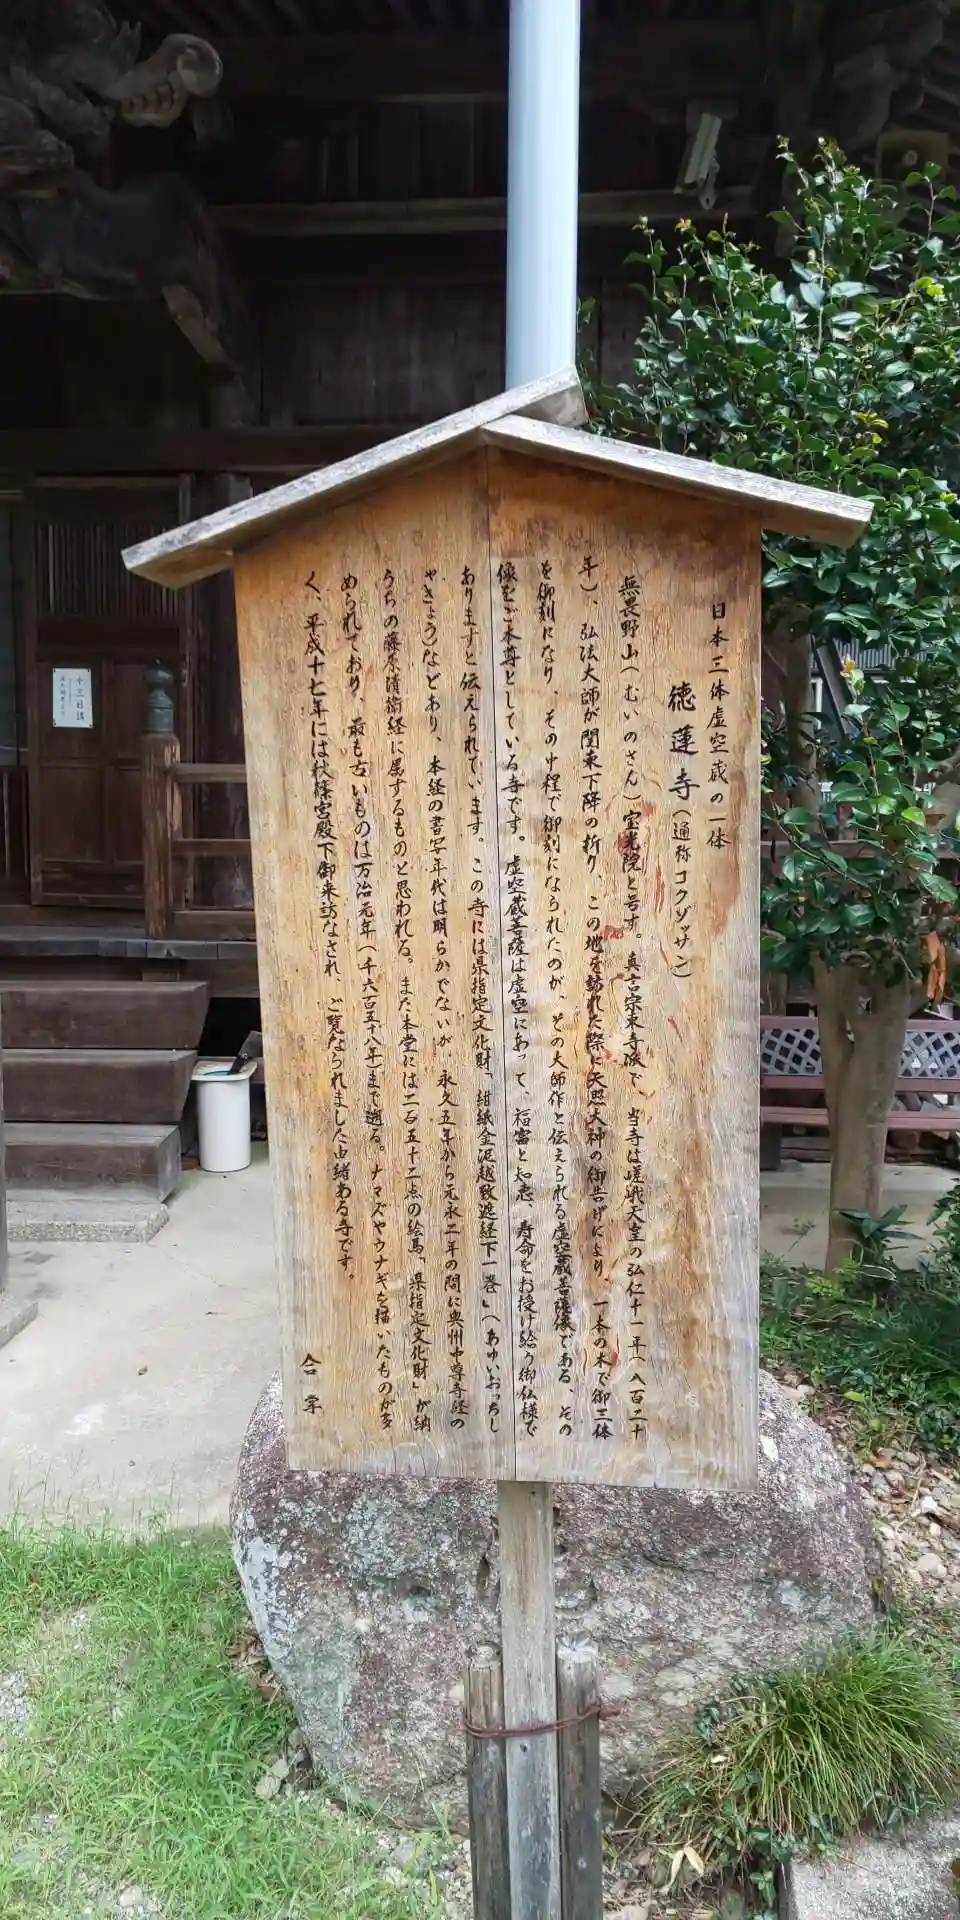 日本三体虚空蔵の一体
徳蓮寺（通称コクゾッサン）
無畏野山（むいのさん）宝光院と号す。真言宗東寺派で、当寺は嵯峨天皇の弘仁十一年（八百二十
年）、弘法大師が関東下降の折り、この地を訪れた際に天照大神の御告げにより、一本の木で御三体
を御刻になり、その中程で御刻になられたのが、その大師作と伝えられる虚空蔵菩薩像である、その
像をご本尊としている寺です。虚空蔵菩薩は虚空にあって、福富と知恵、寿命をお授け給う御仏様で
ありますと伝えられています。この寺には県指定文化財「紺紙金泥越致遮経下一巻」（あゆいおっちし
ゃきょう）などあり、本経の書写年代は明らかでないが、永久五年から元永二年の間に奥州中尊寺経の
うちの藤原清衡経に属するものと思われる。また本堂には二百五十二点の絵馬「県指定文化財」が納
められており、最も古いものは万治元年（千六百五十八年）まで遡る。ナマズやウナギを描いたものが多
く、平成十七年には秋篠宮殿下御来訪なされ、ご覧なられました由緒ある寺です。
合掌
十三日講